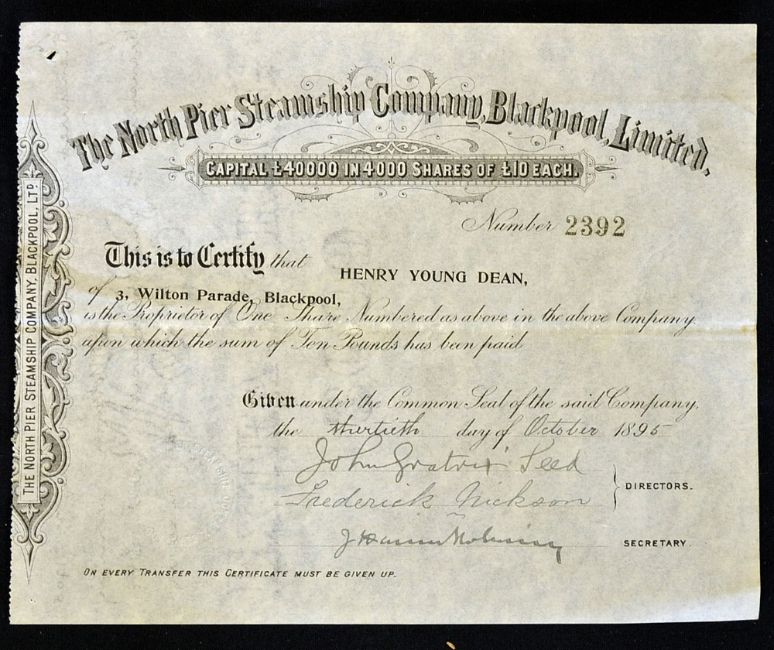 The North Pier Steamship Company, Blackpool, Limited.
CAPITAL £40000 IN 4000 SHARES OF £10 EACH.
Number 2392
This is to Certify that HENRY YOUNG DEAN,
of 3, Wilton Parade, Blackpool,
is the Proprietor of One Share Numbered as above in the above Company
upon which the sum of Ten Pounds has been paid
Given under the Common Seal of the said Company,
the thirtieth day of October 1895
John Gratrix Seed
Frederick Nickson
DIRECTORS.
SECRETARY.
ON EVERY TRANSFER THIS CERTIFICATE MUST BE GIVEN UP.
THE NORTH PIER STEAMSHIP COMPANY, BLACKPOOL, LTD